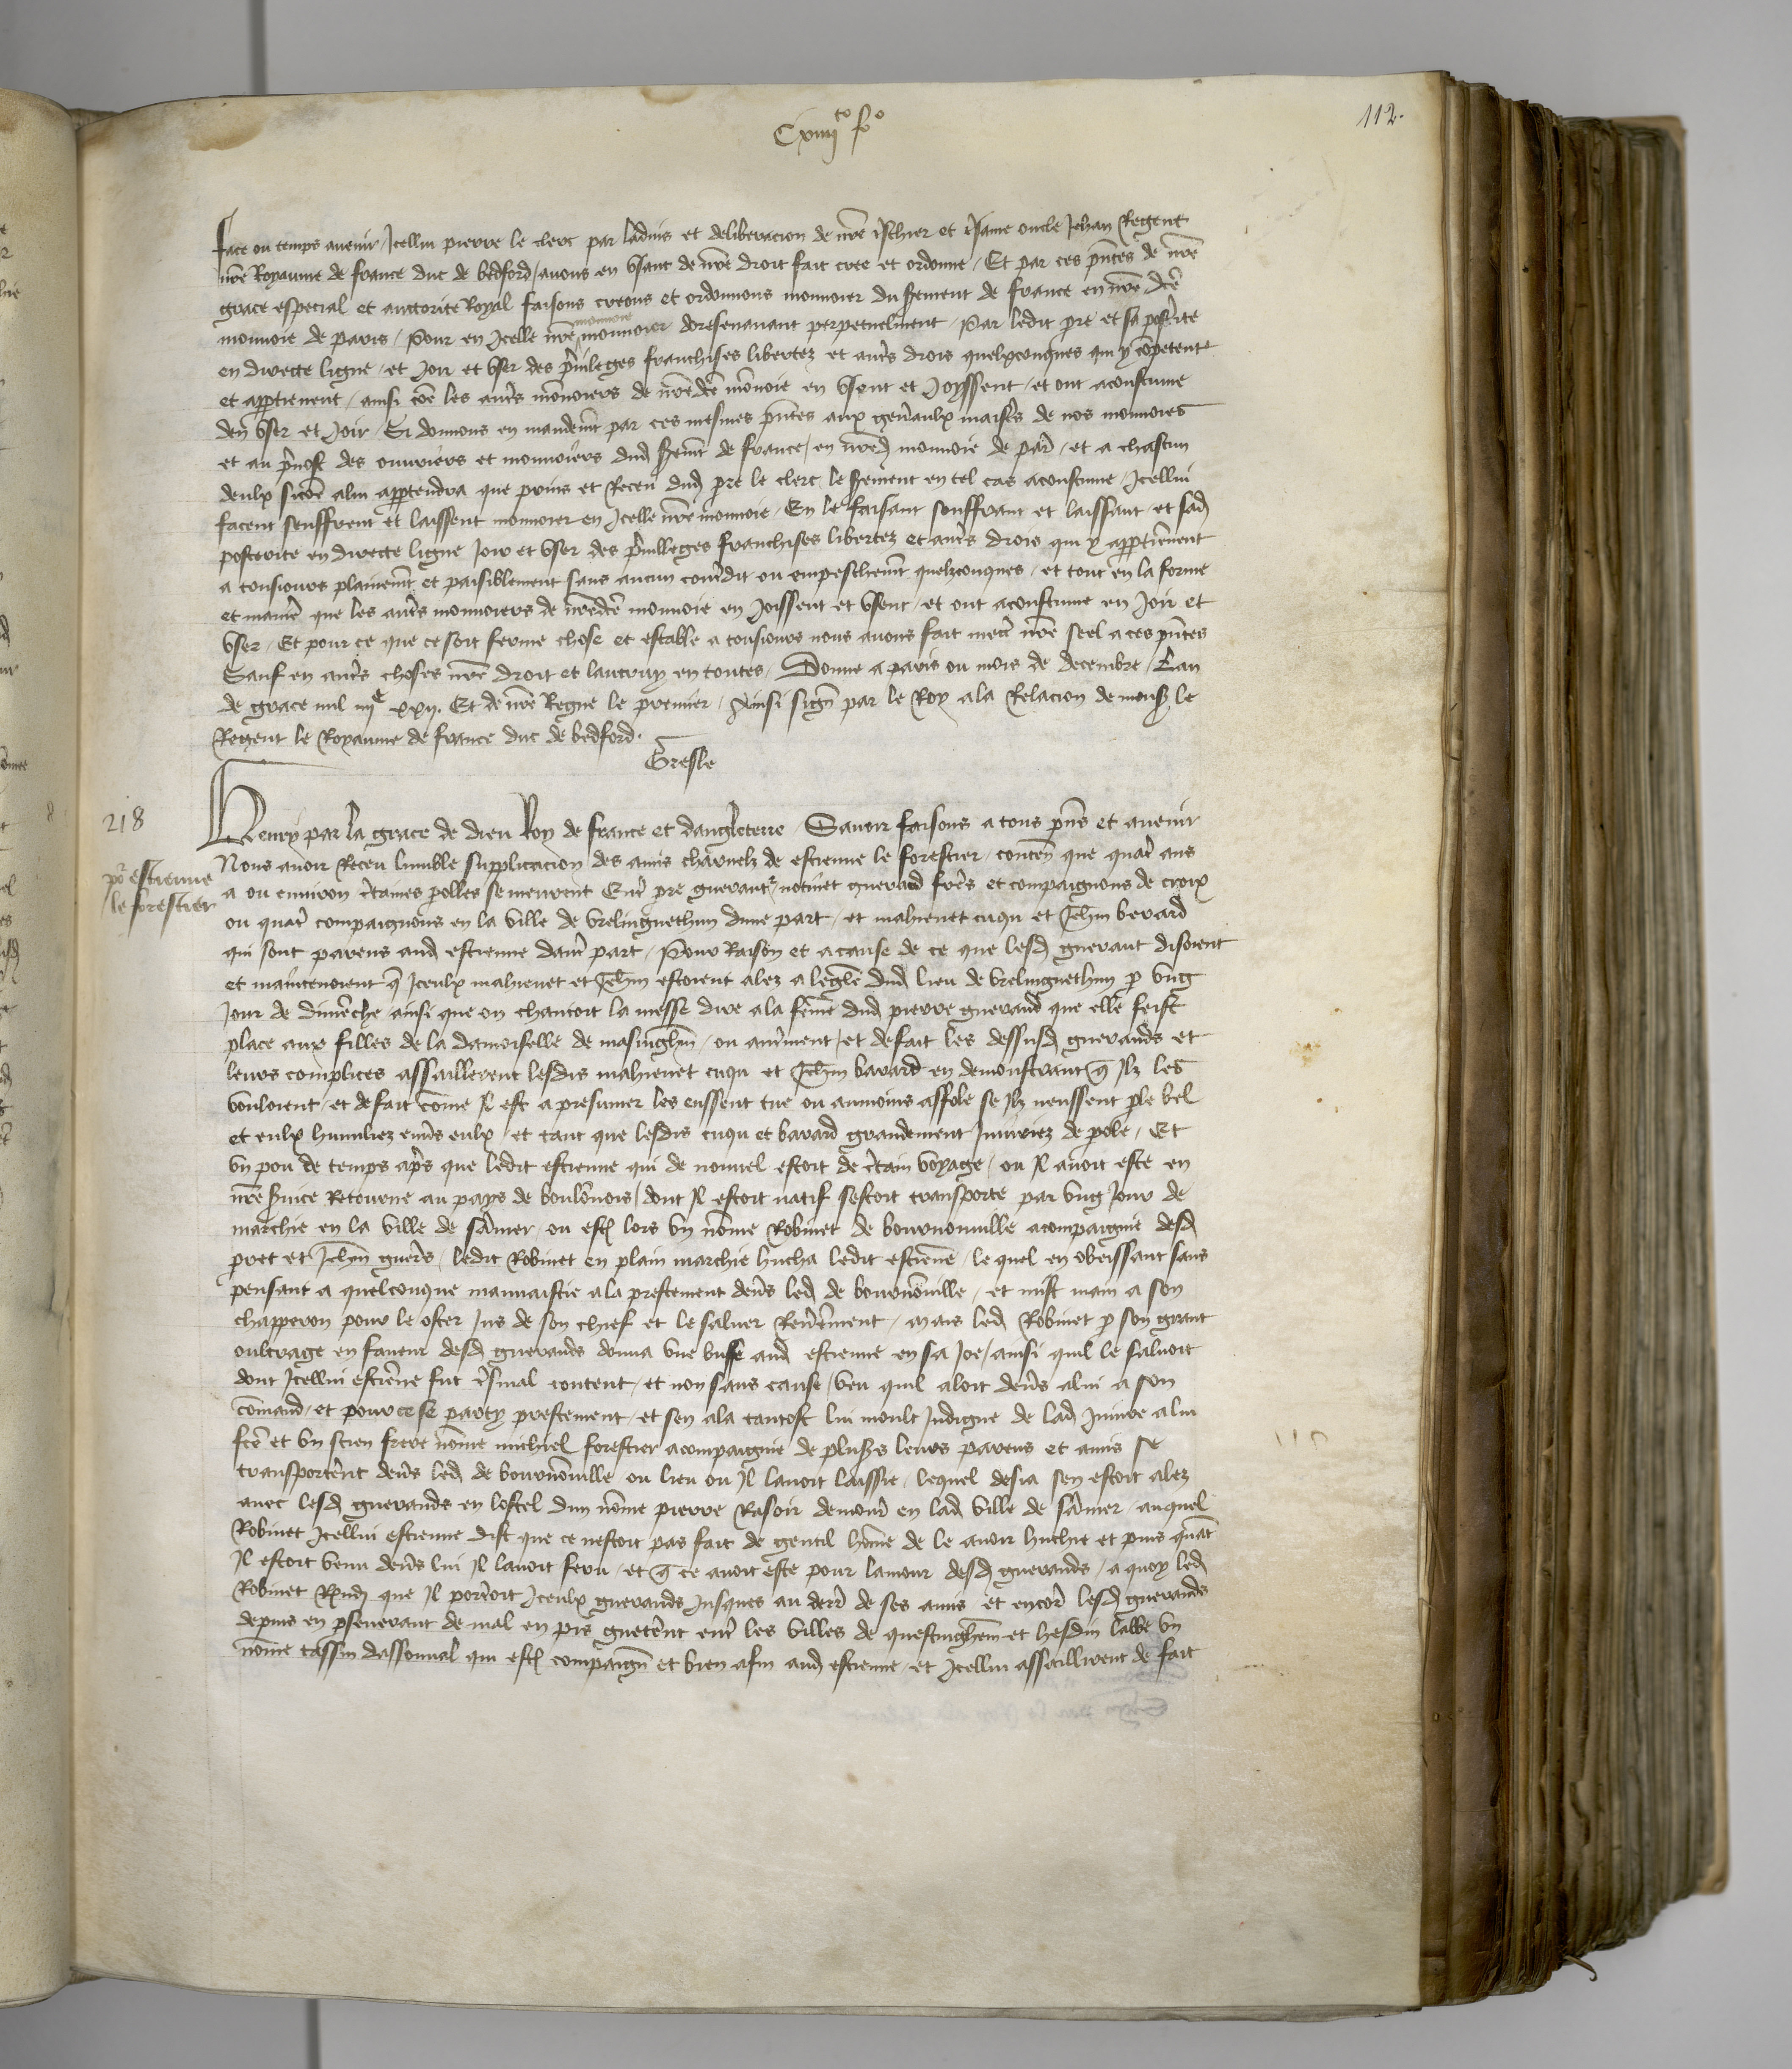 Cxiiii^to f^o
112.
face ou temps auenir / Icellui pierre le clerc par laduis et deliberacion de nr̄e t̃schier et t̃same oncle Jehan Regent
nr̄e Royaume de france duc de bedford / auons en vsant de nr̄e droit fait cree et ordonne / Et par ces p̄ntes de nr̄e
grace especial et auctorite Royal faisons creons et ordonnons monnoier du s̃ement de france en nr̄e dc̄e
monnoie de paris / Pour en Icelle nr̄e monnoie monnoier doresenauant perpetuelment / Par ledit p̄re et sa post̃ite
en directe ligne / et Joir et vser des p̃uileges franchises libertez et aut̃s drois quelxconques qui y c̄opetent
et app̄tienent / ainsi c̄oe les aut̃s mōnoiers de nr̄edc̄e mōnoie en vsent et Joyssent / et ont acoustume
den vser et Joir / Si donnons en mandem̄t par ces mesmes p̄ntes aux gen̄aulx maist̃s de nos monnoies
et au p̃uost des ouuriers et monnoiers dud̄ s̃em̄t de france / en nr̄ed̄ monnoie de par̄ / et a chascun
deulx sicōe a lui app̄tendra que prins et Receu dud̄ p̄re le clerc le s̃ement en tel cas acoustume / Icellui
facent seuffrent et laissent monnoier en Icelle nr̄e monnoie / En le faisant souffrant et laissant / et sad̄
posterite en directe ligne Joir et vser des p̃uilleges franchises libertez et aut̃s drois qui y app̄tiēnent
a tousiours plainem̄t et paisiblement sans aucun cont̃dit ou empeschem̄t quelzconques / et tout en la forme
et manie͂ que les aut̃s monnoiers de nr̄edc̄e monnoie en Joissent et vsent / et ont acoustume en Joir et
vser / Et pour ce que ce soit ferme chose et estable a tousiours nous auons fait mect̃ nr̄e seel a ces p̄ntes
Sauf en aut̃s choses nr̄e droit et lautruy en toutes / Donne a paris ou mois de decembre / Lan
de grace mil iiii^c xxii. Et de nr̄e Regne le premier / Ainsi sign̄ par le Roy a la Relacion de mons̃ le
Regent le Royaume de france duc de bedford.
Gresle
218
Henry par la grace de dieu Roy de france et dangleterre / Sauoir faisons a tous p̄ns et auenir
po^r estienne
le forestier
Nous auoir Receu lumble supplicacion des amis charnelz de estienne le forestier / conten̄ que quat̃ ans
a ou enuiron c̃taines p̄olles se meurent Ent̃ p̄re guerant^z / notinet guerard fre͂s et compaignons de croix
ou quat̃ compaignons en la ville de vrelinguethun dune part / et mahienet cuqu et Jeh̄in berard
qui sont parens aud̄ estienne daut̃ part / Pour Raison et a cause de ce que lesd̄ guerant disoient
et maintenoient q̄ Iceulx mahienet et Jeh̄in estoient alez a legl̄e dud̄ lieu de vrelinguethun p̄ vng
Jour de dimēche ainsi que on chantoit la messe dire a la fēme dud̄ pierre guerand que elle feist
place aux filles de la damoiselle de masinghē̄ / ou aut̃ment / et de fait les dessusd̄ guerands et
leurs complices assaillerent lesdis mahienet cuqu et Jeh̄in bavard en demonstrant q̄ Ilz les
vouloient / et de fait cōme Il est a presumer les eussent tue ou aumoins affole se Ilz neussent p̄le bel
et eulx humiliez enũs eulx / et tant que lesdis cuqu et bavard grandement Iniuriez de p̄ole / Et
vn pou de temps ap̃s que ledit estienne qui de nouuel estoit de c̃tain voyage / ou Il auoit este en
nr̄e s̃uice Retourne au pays de boulōnois / dont Il estoit natif sestoit transporte par vng Jour de
marchie en la ville de sāmer / ou est̃ lors vn nōme Robinet de bournonuille acompaignie desd̄
p̄ret et Jeh̄in guere͂s / ledit Robinet en plain marchie hucha ledit estiēne / le quel en obeissant sans
pensant a quelconque mauuaistie ala prestement deũs led̄ de bournōuille / et mist main a son
chapperon pour le oster Jus de son chief et le saluer Reũēment / Mais led̄ Robinet p̄ son grant
oultrage en faueur desd̄ guerands donna vne buffe aud̄ estienne en sa Joe / ainsi quil le saluoit
dont Icellui estiēne fut t̃smal content / et non sans cause / veu quil aloit deũs a lui a son
cōmand / et pour ce se party prestement / et sen ala tantost lui moult Indigne de lad̄ Iniure a lui
fc̄e et vn sien frere nōme michiel forestier acompaignie de plus̃s leurs parens et amis se
transportēent deũs led̄ de bournōuille ou lieu ou Il lauoit laissie / lequel desia sen estoit alez
auec lesd̄ guerands en lostel dun nōme pierre Rasoir demour̄ en lad̄ ville de sāmer / auquel
Robinet Icellui estienne dist que ce nestoit pas fait de gentil hōme de le auoir huchie et puis quāt
Il estoit venu deũs lui Il lauoit feru / et q̄ ce auoit este pour lamour desd̄ guerands / a quoy led̄
Robinet Rn̄d̄ que Il port̃oit Iceulx guerands Jusques au derr̄ de ses amis et encore͂ lesd̄ guerands
depuis en p̄seuerant de mal en pis guetēent ent̃ les villes de questinghē̄ et hesdin labbe vn
nōme tassin dassonual qui est̃ compaign̄ et bien afin aud̄ estienne / et Icellui assaillirent de fait